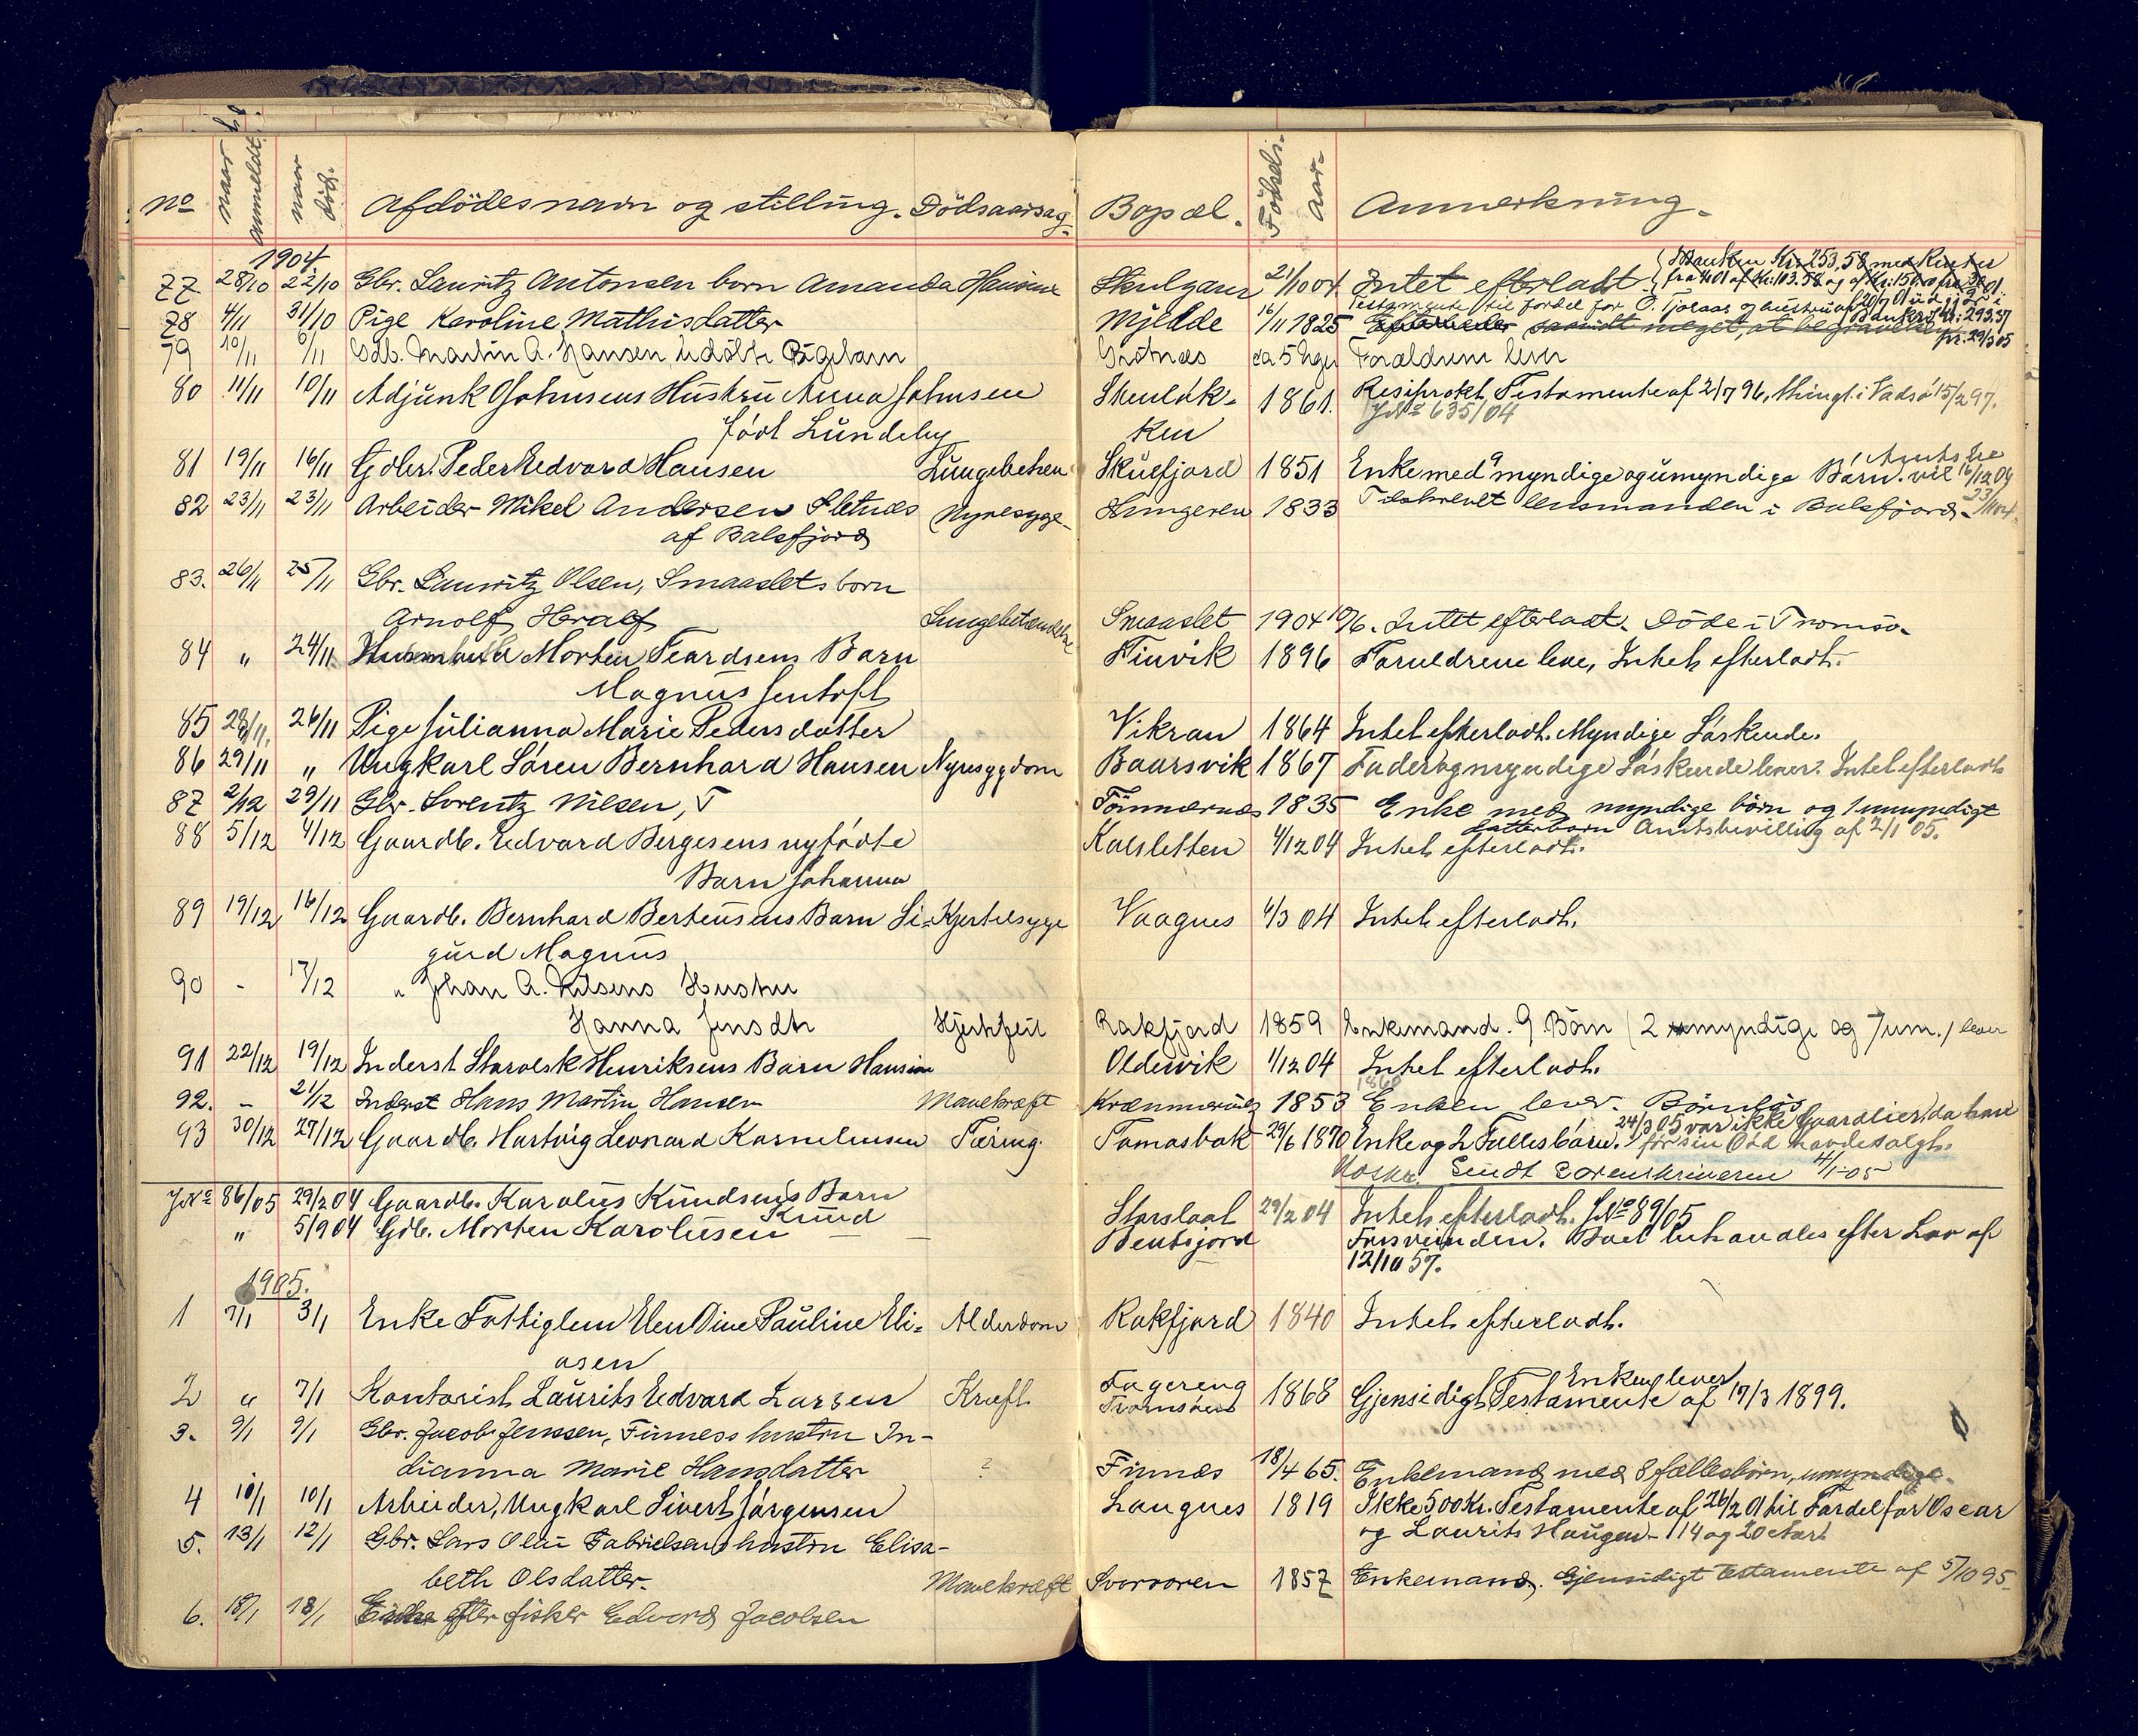 No naar anmeldt. naar död. Afdödes navn og stilling. Dödsaarsag. Bopæl. Födsels-aar. Anmerkning.
1904
77 28/10 22/10 Gbr. Lauritz Antonsen born Amanda Hansine Skulgam 21/10 04 Intet efterladt.
78 4/11 31/10 Pige Karoline Mathisdatter Mjelde 16/11 1825
Testamente til fordel for O. Tjolaas og hustru af 20/7 01
79 10/11 6/11 Gdb. Martin A. Hansen udøbt Pigebarn Grötnæs ca 5 Dager Forældrene lever
80 11/11 10/11 Adjunk O Johnsens Hustru Anna Johnsen Skulbak- 1861. Resiprokt Testamente af 2/7 96, thingl. i Vadsö 15/2 97.
född Lundeby ken JNo 635/04
81 19/11 16/11 Gdbr. Peder Edvard Hansen Lungebetæn Skulfjord 1851 Enke med 9 myndige og umyndige Børn. vil 16/12 04
82 23/11 23/11 Arbeider Mikel Andersen Sletnes Nyresyge Hungeren 1833 Tilskrevet lensmanden i Balsfjord 23/11 04.
af Balsfjord
83. 26/11 25/11 Gbr. Lauritz Olsen, Smaaslets born
Arnolf Heralf Lungebetændelse Smaaslet 1904 10/6. Intet efterladt. Döde i Tromsö.
84 " 24/11 Morten Eeardsens Barn Finvik 1896 Forældrene leve, Intet efterladt.
Magnus Jentoft
85 28/11. 26/11 Pige Julianna Marie Pedersdatter Vikran 1864 Intet efterladt. Myndige Søskende.
86 29/11 " Ungkarl Søren Bernhard Hansen Nyresygdom Baarsvik 1867 Fader og myndige Søskende lever. Intet efterladt
87 2/12 29/11 Gbr. Lorentz Nilsen, T Tönnernes 1835 Enke med myndige börn og 1 umyndigt
datterbarn Amtsbevilling af 2/1 05.
88 5/12 4/12 Gaardb. Edvard Bergesens nyfødte Kalsletten 4/12 04 Intet efterladt.
Barn Johanna
89 19/12 16/12 Gaardb. Bernhard Bertensens Barn Si= Kjertelsyge Vaagnes 4/3 04 Intet efterladt.
gurd Magnus
90 - 17/12 " Johan A. Nilsens Hustru
Hanna Jensdtr Hjertefeil Rakfjord 1859 Enkemand. 9 Börn (2 myndige og 7 um.) lever
91 22/12 19/12 Inderst Storolsk Henriksens Barn Hansine Oldervik 1/12 04 Intet efterladt.
1860
92. - 21/12 Inderst Hans Martin Hansen Mavekræft Kræmmernes 1853 Enken lever. Börnløs
93 30/12 27/12 Gaardb. Hartvig Leonard Kornelinssen Tæring. Tomasbak 29/6 1870 Enke og 2 Fællesbørn. 24/3 05 var ikke Gaardeier, da han
før sin Død havde solgt.
Sendt Sorenskriveren 4/1-05
JNo 86/05 29/2 04 Gaardb. Karolus Knudsens Barn Storslaat 29/2 04 Intet efterladt. JNo 89/05
Knud
" 5/9 04 Gdb. Morten Karolussen Bentsjord Forsvunden. Boet behandles efter Lov af
12/10 57.
1905.
1 7/1 3/1 Enke Fattiglem Elen Dine Pauline Eli= Alderdom Rakfjord 1840 Intet efterladt.
asen
Enken lever
2 " 7/1 Kontorist Laurits Edvard Larsen Kræft. Fagereng 1868 Gjensidigt Testamente af 17/3 1899.
Tromsösund
3. 9/1 9/1 Gbr. Jacob Jenssen, Finnes hustru In-
dianna Marie Hansdatter ? Finnes 18/4 65. Enkemand med 8 fællesbörn, umyndige.
4 10/1 10/1 Arbeider, Ungkarl Sivert Jørgensen Langnes 1819 Ikke 500 Kr. Testamente af 26/2 01 til Fordel for Oscar
og Laurits Haugen - 14 og 20 Aar.
5. 13/1 12/1 Gbr. Lars Olai Gabrielsens hustru Elisa-
beth Olsdatter. Mavekræft Svarvaren 1857 Enkemand. Gjensidigt testamente af 5/10 95
6. 18/1 18/1 efter fisker Edvard Jacobsen